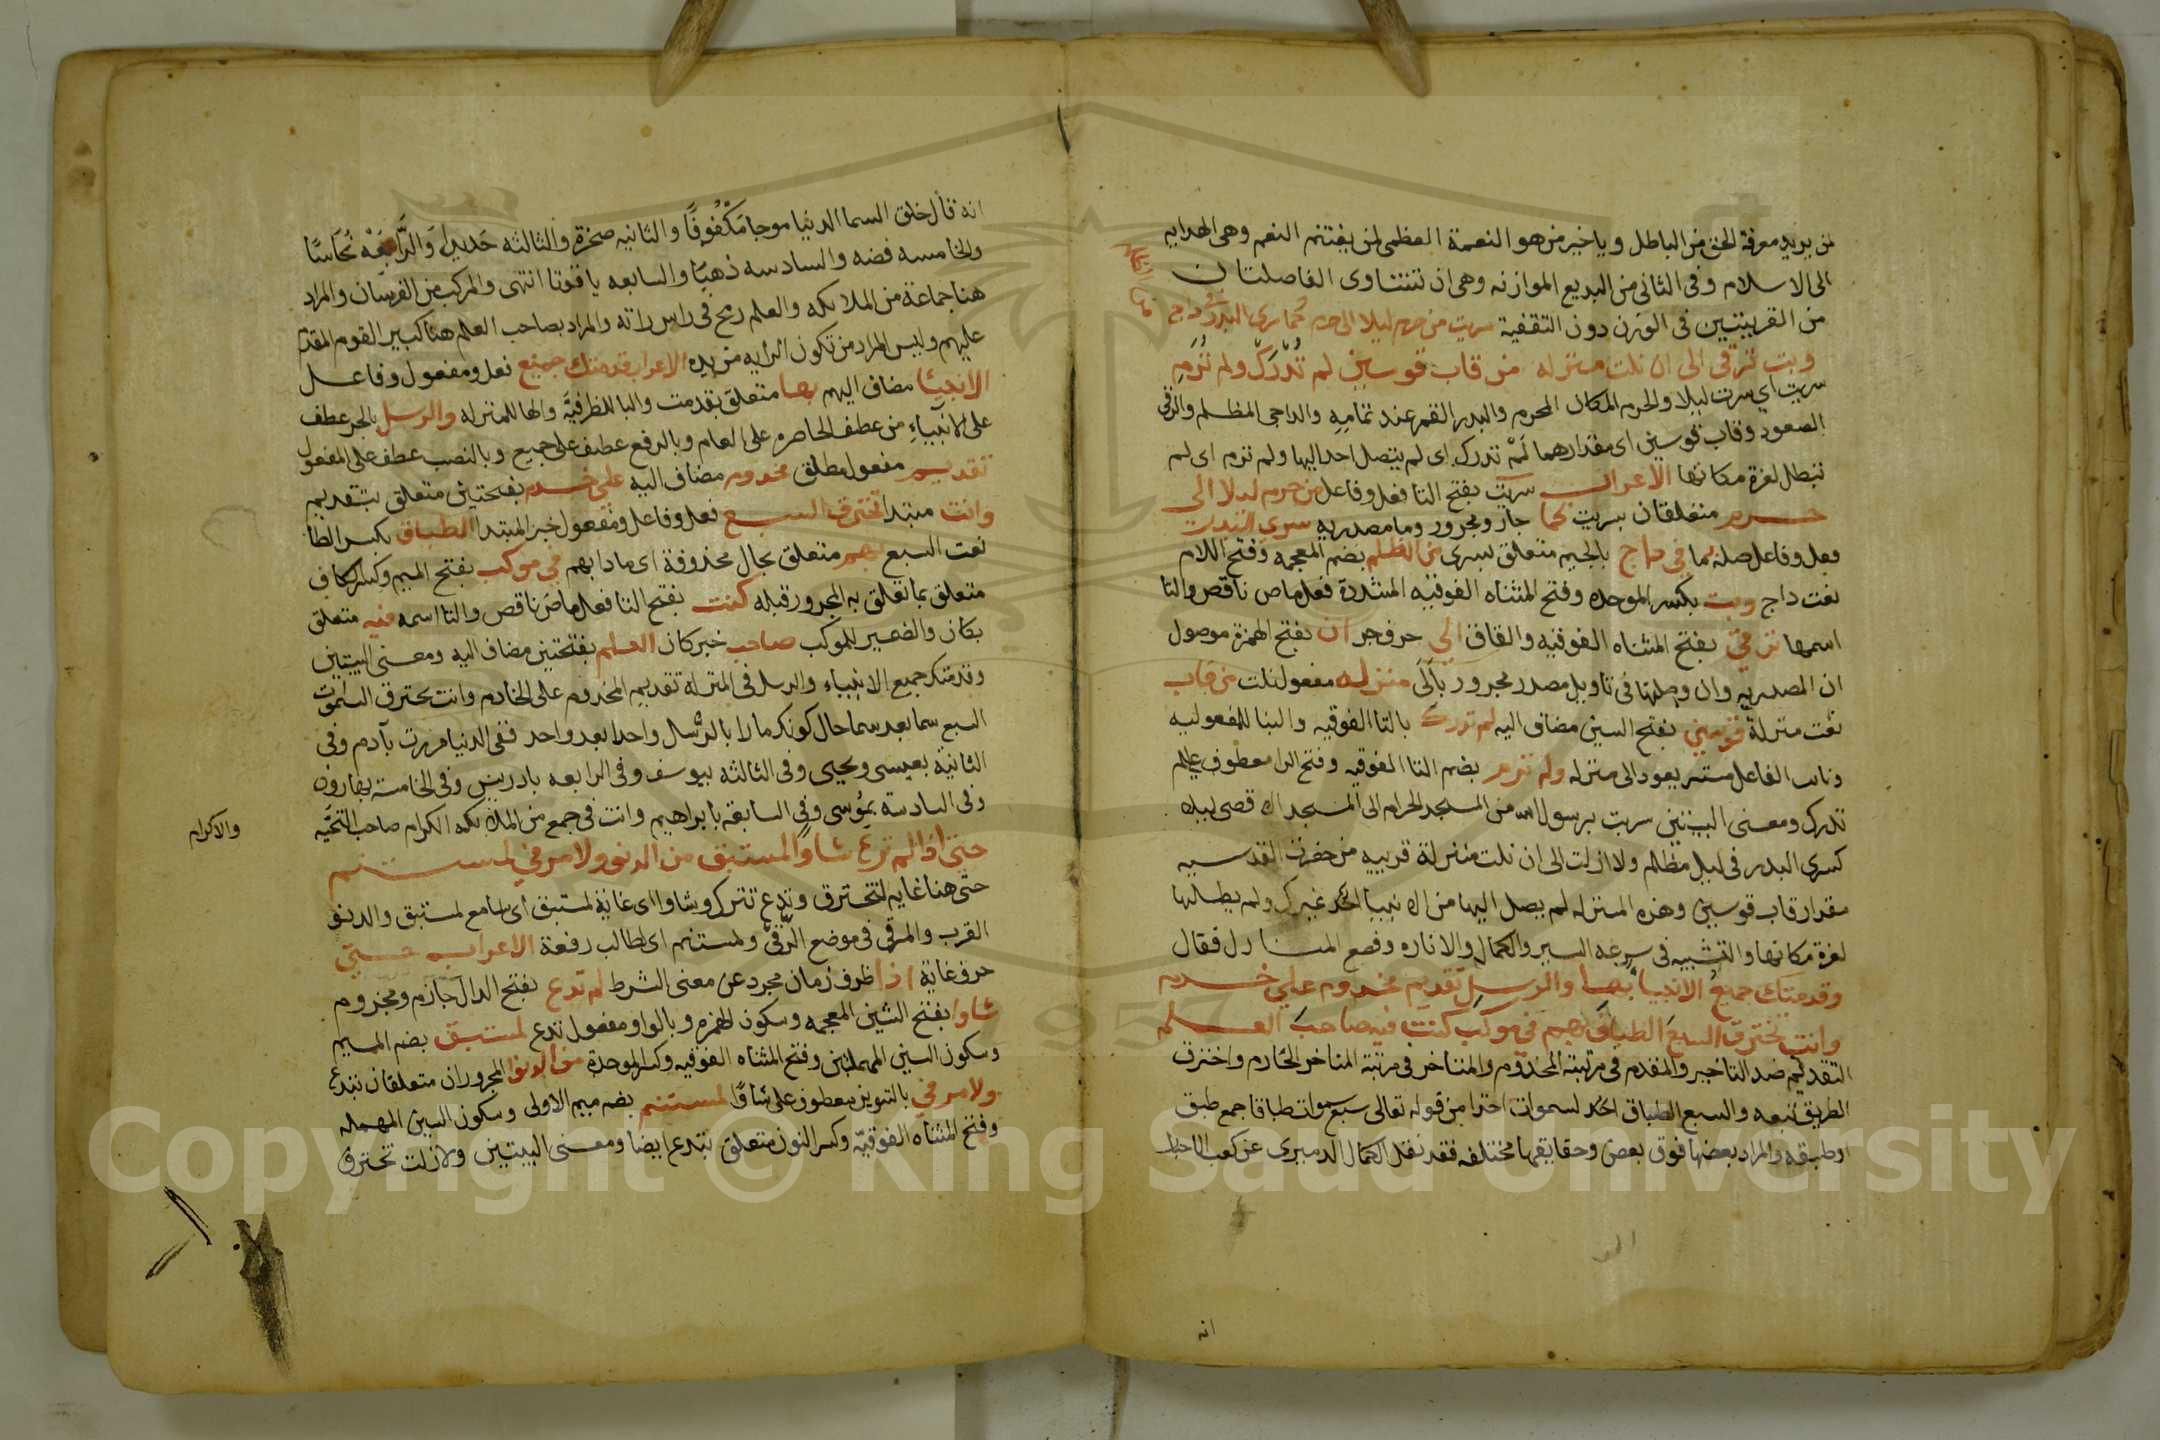 لمن يريد معرفة الحق من الباطل ويا خير من هو النعمة العظمى لمن يغتنم النعم وهى الهدايه
الى الاسلام وفى الثانى من البديع الموازنه وهى ان تتساوى الفاصلتان
من القرينتين فى الوزن دون التقفية سريت من حرم ليلا الى حرم كما سرى البدر فى داج
وبت ترقى الى ان نلت منزله من قاب قوسين لم تدرك ولم ترم
سريت اي سرت ليلا والحرم المكان المحرم والبدر القمر عند تمامه والداجى المظلم والرقى
الصعود وقاب قوسين اى مقدارهما لم تدرك اى لم يتصل احد اليها ولم ترم اى لم
تطلب لعزة مكانها الاعراب سريت بفتح التا فعل وفاعل من حرم ليلا الى
حرم متعلقان بسريت كما جار ومجرور وما مصدريه سرى البدر
فعل وفاعل صلة بما فى داج بالجيم متعلق بسرى من الظلم بضم المعجمه وفتح اللام
نعت داج وبت بكسر الموحده وفتح المثناه الفوقيه المشددة فعل ماض ناقص والتا
اسمها ترقى بفتح المثناه الفوقيه والقاف الى حرف جر ان بفتح الهمزة موصول
ان المصدريه وان وصلتها فى تاويل مصدر مجرور بالى منزله مفعول نلت من قاب
نعت منزلة قوسين بفتح السين مضاف اليه لم تدرك بالتا الفوقيه والبنا للمفعوليه
ونائب الفاعل مستتر يعود الى منزله ولم ترم بضم التا الفوقيه وفتح الرا معطوف على لم
تدرك ومعنى البيتين سريت يرسول الله من المسجد الحرام الى المسجد الاقصى ليلا
كسرى البدر فى ليل مظلم ولا زلت الى ان نلت منزلة قريبه من حضرت القدسيه
مقدار قاب قوسين وهذه المنزله لم يصل اليها من الانبيا احد غيرك ولم يطلبها
لعزة مكانها والتشبيه فى سرعه السير والكمال والاناره وقطع المنازل فقال
وقدمتك جميع الانبيا بها والرسل تقديم مخدوم على خدم
وانت تخترق السبع الطباق بهم فى موكب كنت فيه صاحب العلم
التقديم ضد التاخير والمتقدم فى مرتبته المخدوم والمتاخر فى مرتبة المتاخر الخادم واخترق
الطريق تتبعه والسبع الطباق السموات اخذا من قوله تعالى سبع سموات طباقا جمع طبق
او طبقه والمراد بعضها فوق بعض وحقايقها مختلفه فقد نقل الكمال الدميرى عن كعب الاحبار
انه
انه قال خلق السما الدنيا موجا مكفوفا والثانيه صخرة والثالثه حديدا والرابعة نحاسا
والخامسه فضه والسادسه ذهبا والسابعه ياقوتا انتهى والمركب من الفرسان والمراد
هنا جماعة من الملايكه والعلم رمح فى راس راته والمراد بصاحب العلم هنا كبير القوم المقدم
عليهم وليس المراد من تكون الرايه من يده الاعراب قدمتك جميع فعل ومفعول وفاعل
الانبيا مضاف اليهم بها متعلق بقدمت والبا للظرفيه والها للمنزله والرسل بالجر عطف
على الانبياء من عطف الخاص على العام وبالرفع عطف على جميع وبالنصب عطف على المفعول
تقديم مفعول مطلق مخدوم مضاف اليه على خدم بفتحتين متعلق بتقديم
وانت مبتدا تخترق السبع فعل وفاعل ومفعول خبر المبتدا الطباق بكسر الطا
نعت السبع بهم متعلق بحال محذوفة اى مارا بهم فى موكب بفتح الميم وكسر الكاف
متعلق بما تعلق به المجرور قبله كنت بفتح التا فعل ماض ناقص والتا اسمه فيه متعلق
بكان والضمير للموكب صاحب خبر كان العلم بفتحتين مضاف اليه ومعنى البيتين
وقدمتك جميع الانبياء والرسل فى المنزلة تقديم المخدوم على الخادم وانت تخترق السموت
السبع سما بعد سما حال كونك مارا بالرسل واحدا بعد واحد ففى الدنيا مررت بآدم وفى
الثانية بعيسى ويحيى وفى الثالثه بيوسف وفى الرابعه بادريس وفى الخامسة بهارون
وفى السادسة بموسى وفى السابعه بابراهيم وانت فى جمع من الملايكه الكرام صاحب التحيه
والاكرام
حتى اذا لم تدع شاوا لمستبق من الدنو ولا مرقى لمستنم
حتى هنا غايه لتخترق وتدع تترك وشاوا اى غاية لمستبق اى سامع لمستبق والدنو
القرب والمرقى فى موضع الرقى ولمستنم اى لطالب رفعة الاعراب حتى
حرف غاية اذا ظرف زمان مجرد عن معنى الشرط لم تدع بفتح الدال جازم ومجزوم
شاوا بفتح الشين المعجمه وسكون الهمزه وبالواو مفعول تدع لمستبق بضم الميم
وسكون السين المهملتين وفتح المثناه الفوقيه وكسر الموحدة من الدنو المجروران متعلقان بتدع
ولا مرقى بالتنوين معطوف على شاوا لمستنم بضم ميم الاولى وسكون السين المهمله
وفتح المثناه الفوقيه وكسر النون متعلق بتدع ايضا ومعنى البيتين ولا زلت تخترق
Copyright © King Saud University